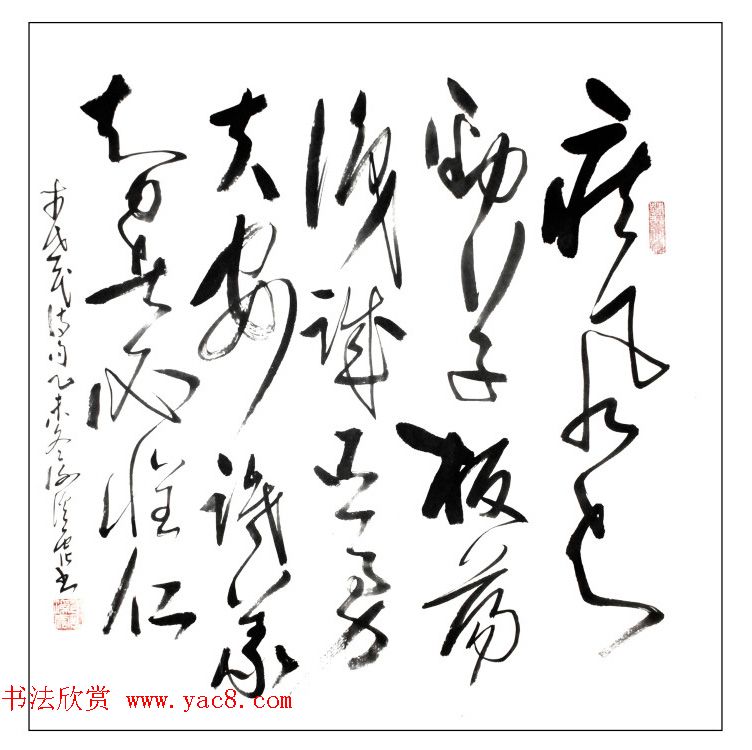 疾风知
劲草板荡
识诚臣勇
夫安识义
智者必怀仁
李世民诗句乙未冬书
书法欣赏 www.yac8.com